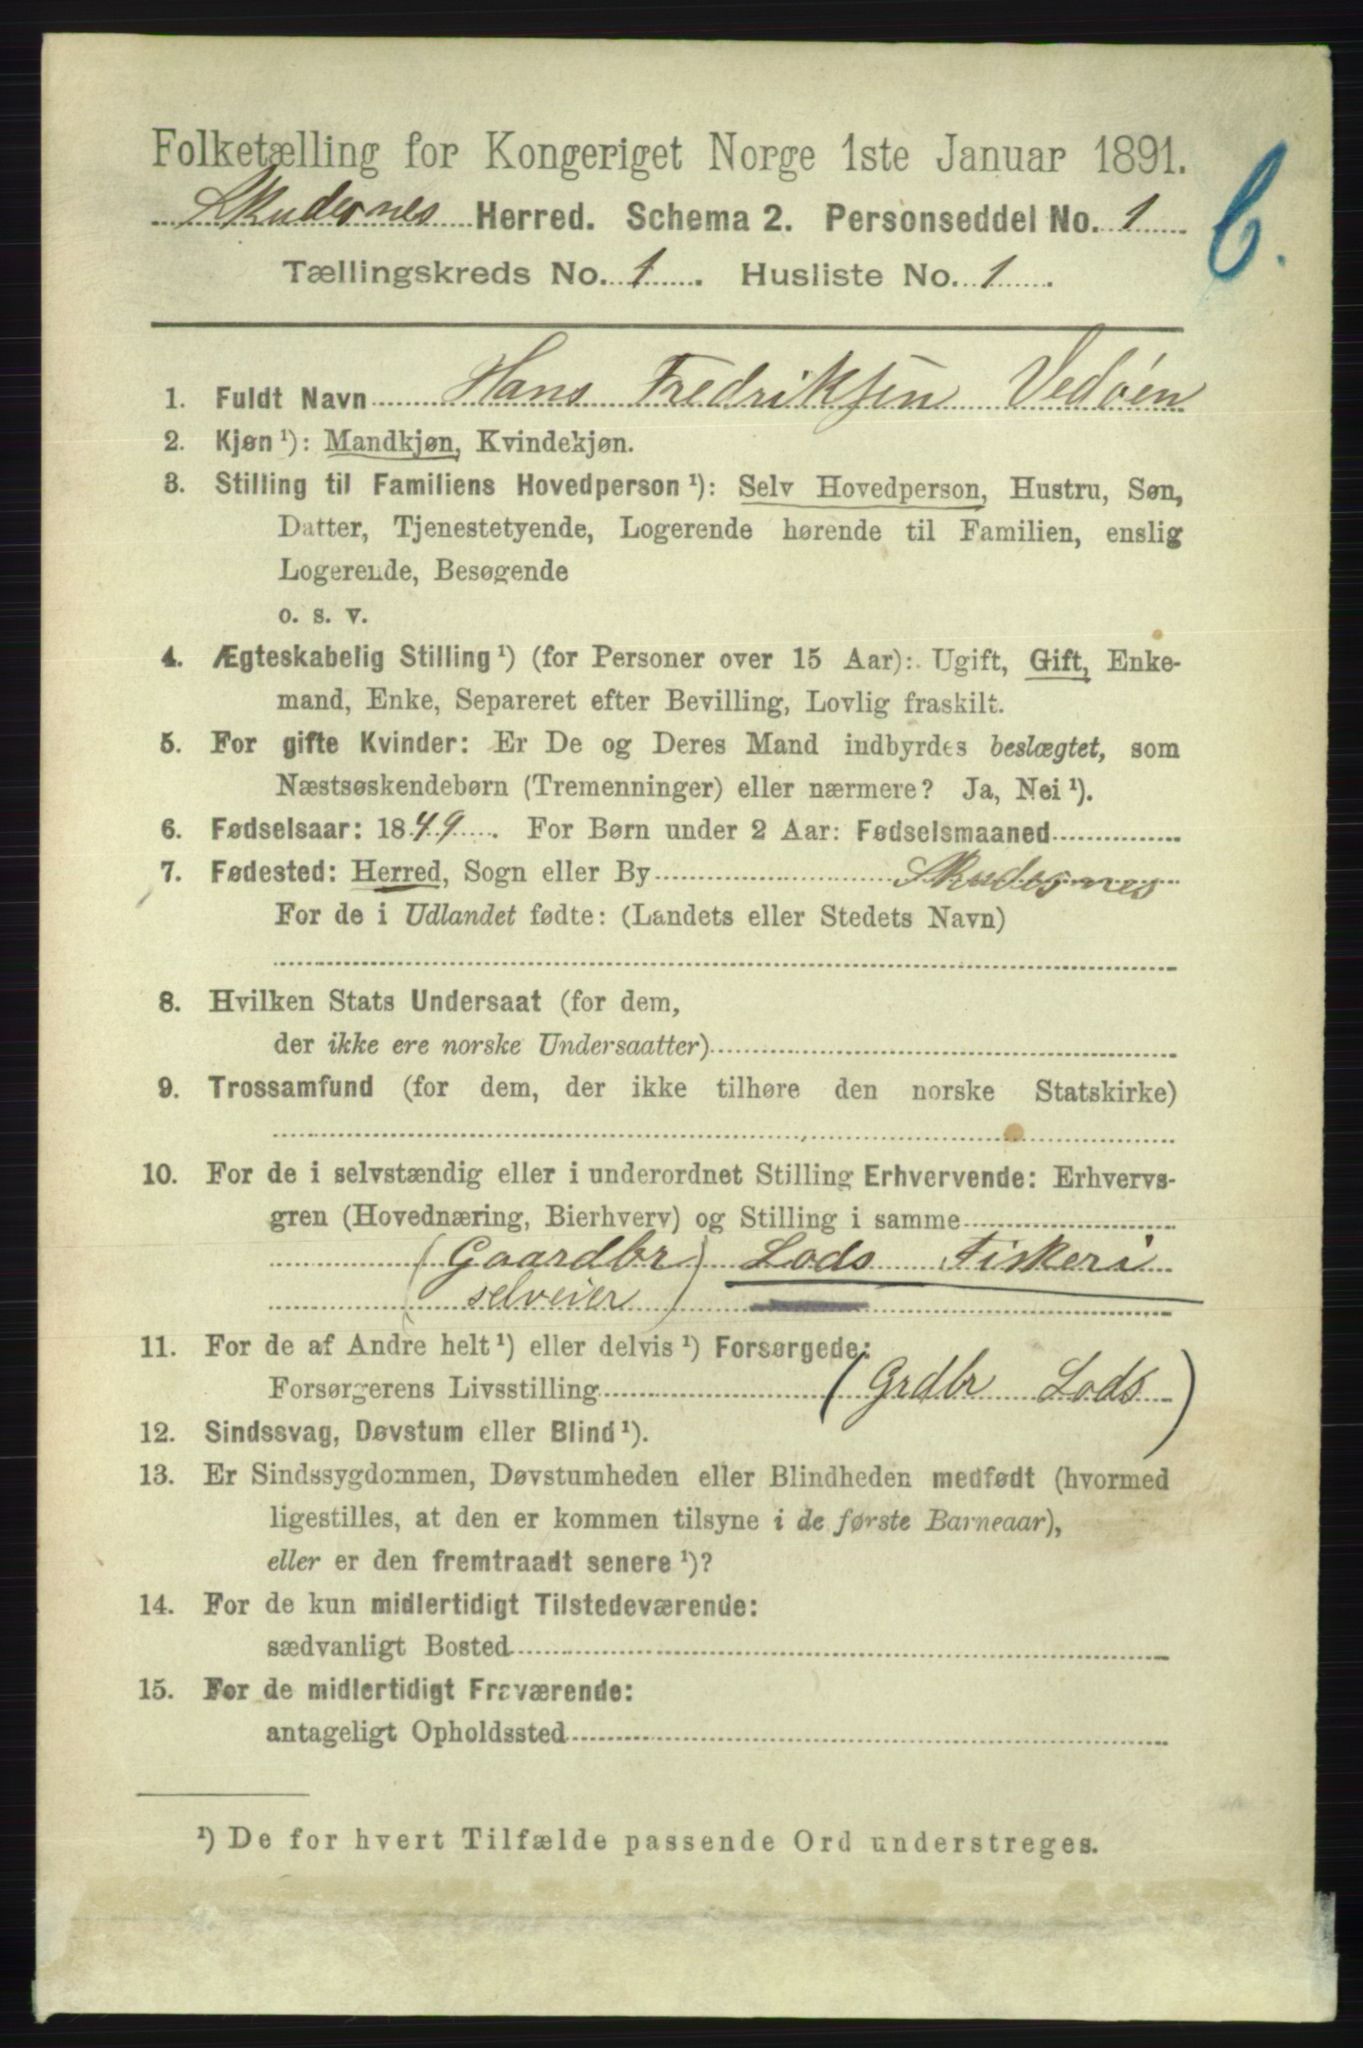 Folketælling for Kongeriget Norge 1ste Januar 1891.
Skudesnes Herred. Schema 2. Personseddel No. 1
Tællingskreds No. 1. Husliste No. 1.
C.
1. Fuldt Navn Hans Fredriksen Vedøen
2. Kjøn ¹): Mandkjøn, Kvindekjøn.
3. Stilling til Familiens Hovedperson ¹): Selv Hovedperson, Hustru, Søn,
Datter, Tjenestetyende, Logerende hørende til Familien, enslig
Logerende, Besøgende
o. s. v.
4. Ægteskabelig Stilling ¹) (for Personer over 15 Aar): Ugift, Gift, Enke-
mand, Enke, Separeret efter Bevilling, Lovlig fraskilt.
5. For gifte Kvinder: Er De og Deres Mand indbyrdes beslægtet, som
Næstsøskendebørn (Tremenninger) eller nærmere? Ja, Nei ¹).
6. Fødselsaar: 1849. For Børn under 2 Aar: Fødselsmaaned
7. Fødested: Herred, Sogn eller By Skudesnes
For de i Udlandet fødte: (Landets eller Stedets Navn)
8. Hvilken Stats Undersaat (for dem,
der ikke ere norske Undersaatter)
9. Trossamfund (for dem, der ikke tilhøre den norske Statskirke)
10. For de i selvstændig eller i underordnet Stilling Erhvervende: Erhvervs-
gren (Hovednæring, Bierhverv) og Stilling i samme
(Gaardbr) Lods Fiskeri
selveier
11. For de af Andre helt ¹) eller delvis ¹) Forsørgede:
Forsørgerens Livsstilling (Grdbr Lods)
12. Sindssvag, Døvstum eller Blind ¹).
13. Er Sindssygdommen, Døvstumheden eller Blindheden medfødt (hvormed
ligestilles, at den er kommen tilsyne i de første Barneaar),
eller er den fremtraadt senere ¹)?
14. For de kun midlertidigt Tilstedeværende:
sædvanligt Bosted
15. For de midlertidigt Fraværende:
antageligt Opholdssted
¹) De for hvert Tilfælde passende Ord understreges.